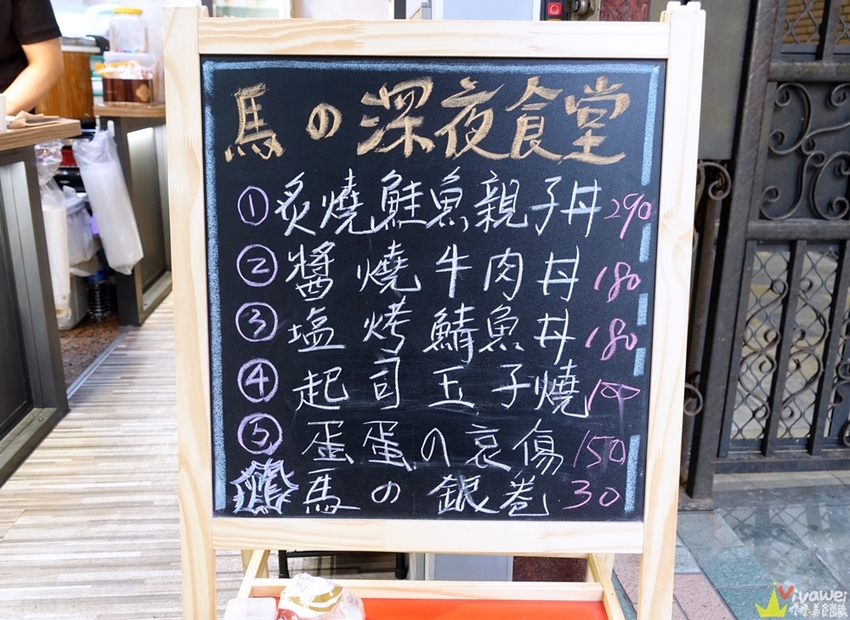 馬の深夜食堂
①炙燒鮭魚親子丼290
②醬燒牛肉丼180
③塩烤鯖魚丼180
④起司玉子燒100
⑤蛋蛋の哀傷150
馬の銀卷30
Viyawei